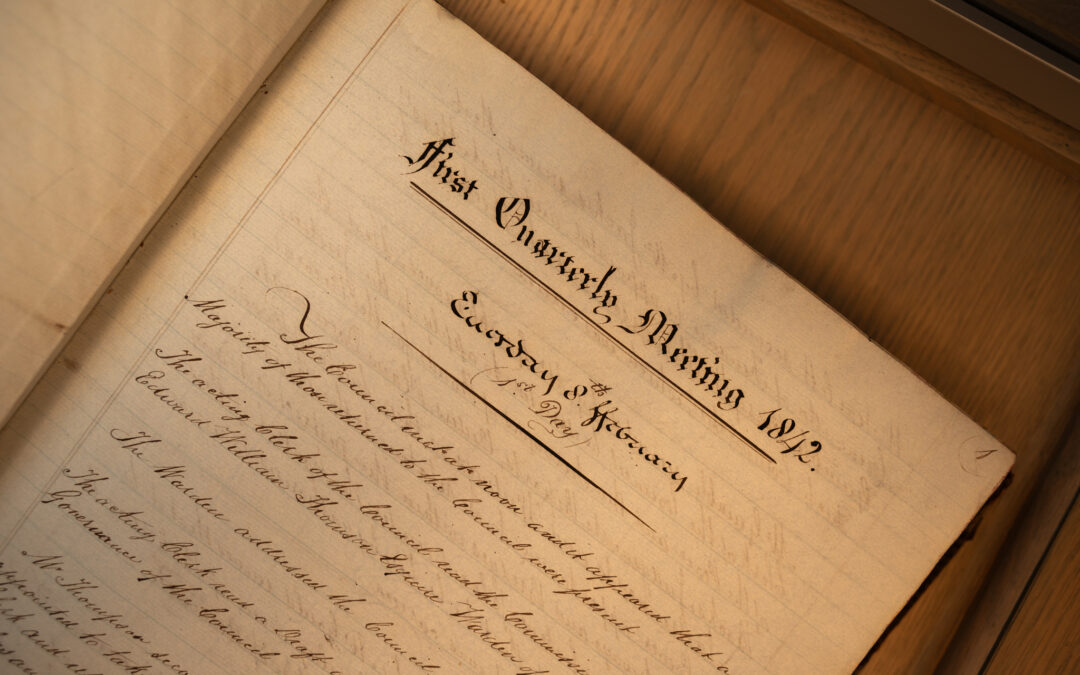 First Quarterly Meeting 1842.
Tuesday 8th February
(1st Day)
1
The Council met at noon and it appeared that a
Majority of those returned to the Council were present
The acting Clerk of the Council read the Commission
Edward William Thomson Esquire Warden of
The Warden addressed the Council
The acting Clerk read a Draft
Governance of the Council
Mr Thompson seco
appointed to tak